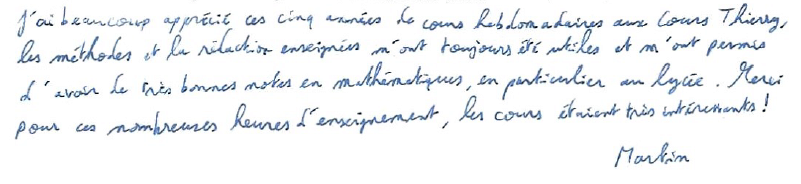 J'ai beaucoup apprécié ces cinq années de cours hebdomadaires aux Cours Thierry,
les méthodes et la rédaction enseignées m'ont toujours été utiles et m'ont permis
d'avoir de très bonnes notes en mathématiques, en particulier au lycée. Merci
pour ces nombreuses heures d'enseignement, les cours étaient très intéressants !
Martin